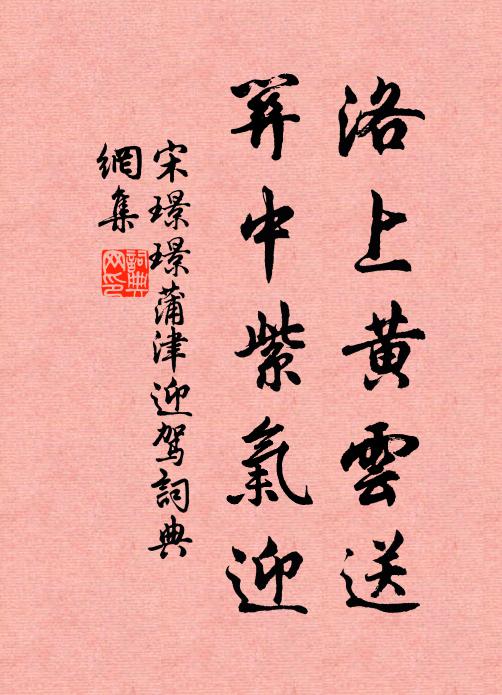 洛上黃雲送
笄中紫氣迎
宋璟璟蒲津迎駕詞典
網集
詞典
网印